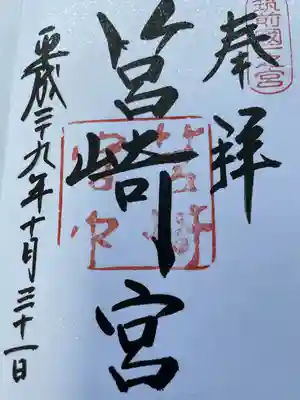 筑前國一之宮
奉拝
筥崎宮
筥崎宮印
平成二十九年十月三十一日